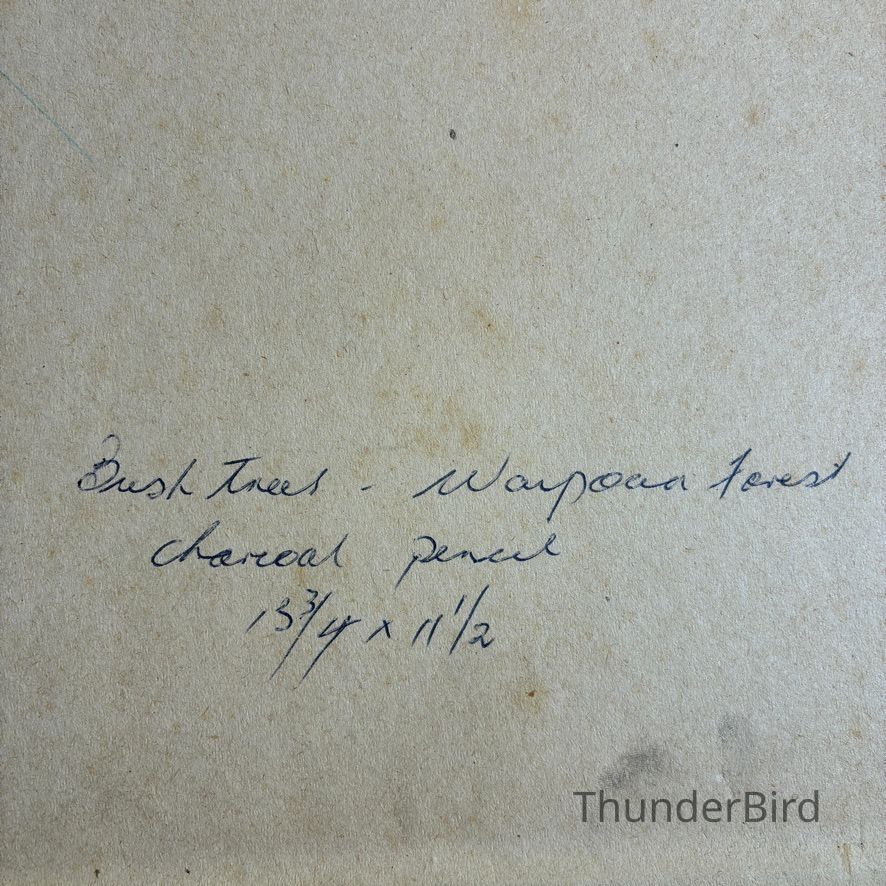 Bush Trees - Waipoua Forest
charcoal pencil
13 3/4 x 11 1/2
ThunderBird